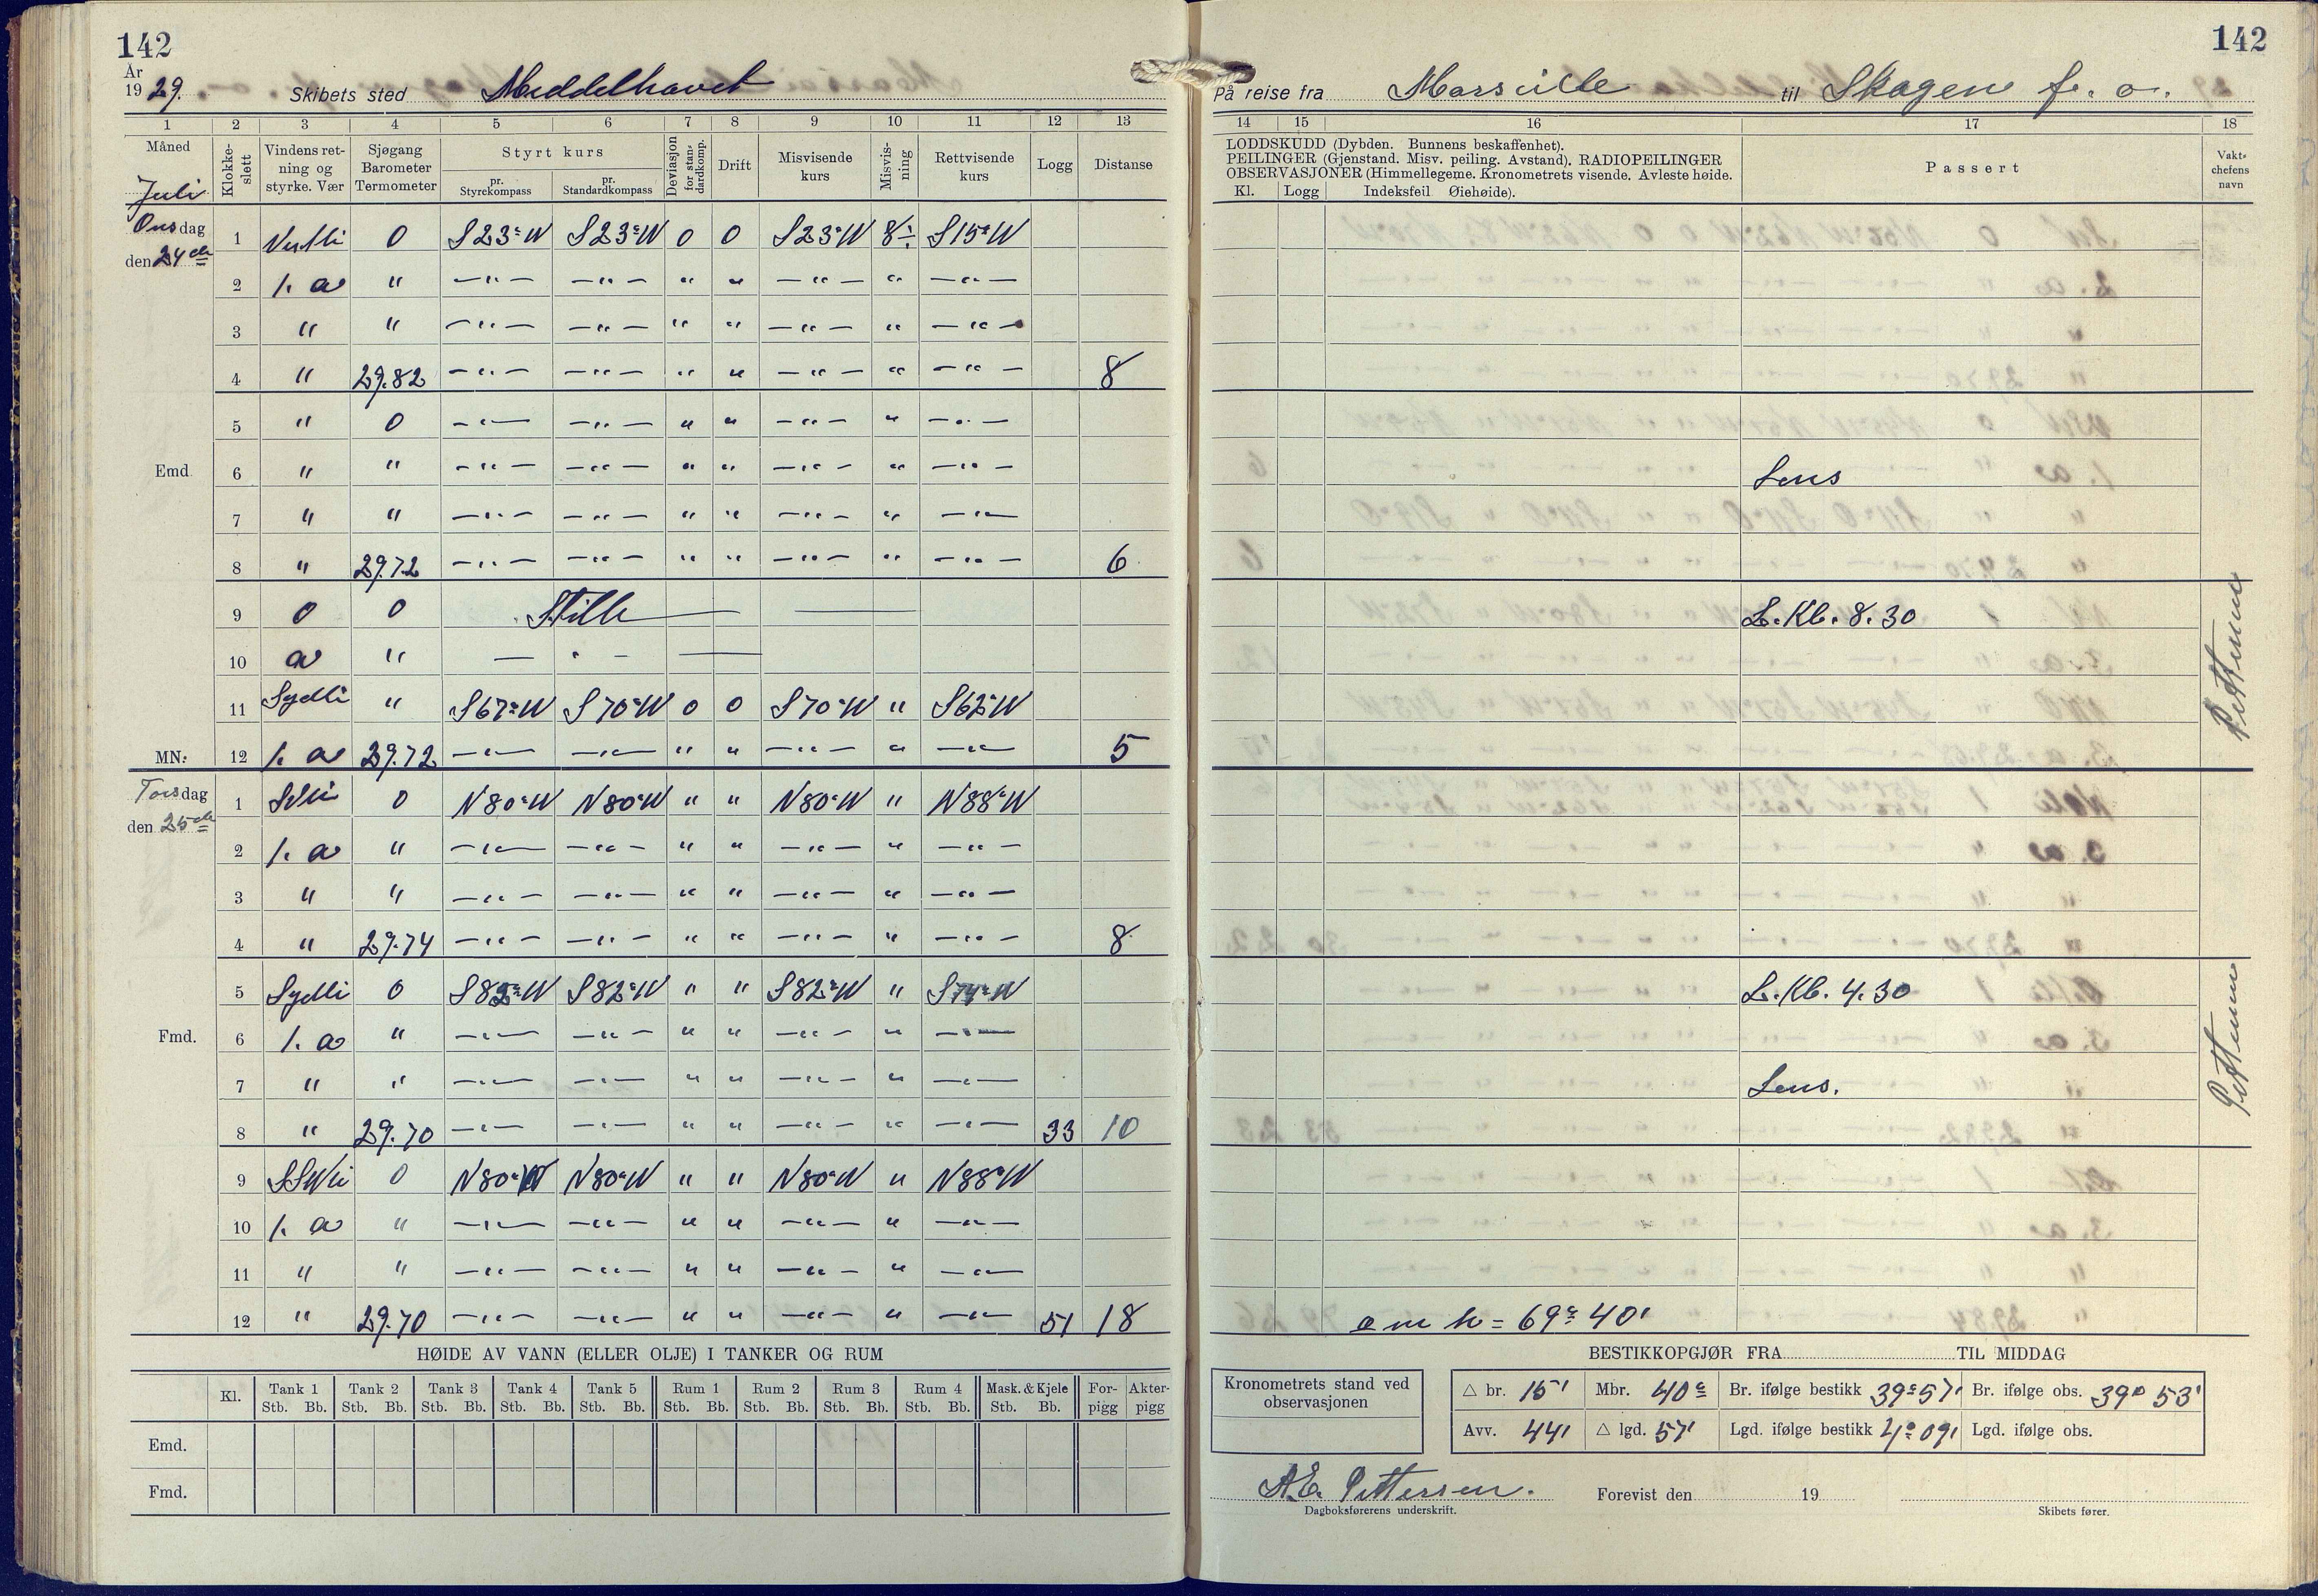 142
År
19 29.
Skibets sted Meddelhavet
1 2 3 4 5 6 7 8 9 10 11 12 13
Måned
Juli
Klokke-
slett
Vindens ret-
ning og
styrke. Vær
Sjøgang
Barometer
Termometer
Styrt kurs
pr.
Styrekompass
pr.
Standardkompass
Deviasjon
for stan-
dardkomp.
Drift
Misvisende
kurs
Misvis-
ning
Rettvisende
kurs
Logg
Distanse
Onsdag
den 24de
1 0 S23°W S23°W 0 0 S23°W 8÷ S15°W
2 1. a " —"— —"— " " —"— " —"—
3 " " —"— —"— " " —"— " —"—
4 " 29.82 —"— —"— " " —"— " —"— 8
5 " 0 —"— —"— " " —"— " —"—
Emd.
6 " " —"— —"— " " —"— " —"—
7 " " —"— —"— " " —"— " —"—
8 " 29.72 —"— —"— " " —"— " —"— 6
9 0 0 Stille
10 a " — " —
11 Sydli " S67°W S70°W 0 0 S70°W " S62°W
MN: 12 1. a 29.72 —"— —"— " " —"— " —"— 5
Torsdag
den 25de
1 0 N80°W N80°W " " N80°W " N88°W
2 1. a " —"— —"— " " —"— " —"—
3 " " —"— —"— " " —"— " —"—
4 " 29.74 —"— —"— " " —"— " —"— 8
5 Sydli 0 S82°W S82°W " " S82°W " S74°W
Fmd.
6 1. a " —"— —"— " " —"— " —"—
7 " " —"— —"— " " —"— " —"—
8 " 29.70 —"— —"— " " —"— " —"— 33 10
9 SSWli 0 N80°W N80°W " " N80°W " N88°W
10 1. a " —"— —"— " " —"— " —"—
11 " " —"— —"— " " —"— " —"—
12 " 29.70 —"— —"— " " —"— " —"— 51 18
HØIDE AV VANN (ELLER OLJE) I TANKER OG RUM
Kl.
Tank 1 Tank 2 Tank 3 Tank 4 Tank 5 Rum 1 Rum 2 Rum 3 Rum 4 Mask. & Kjele For- Akter-
Stb. Bb. Stb. Bb. Stb. Bb. Stb. Bb. Stb. Bb. Stb. Bb. Stb. Bb. Stb. Bb. Stb. Bb. Stb. Bb. pigg pigg
Emd.
Fmd.
142
På reise fra Marseille til Skagen f. o.
14 15 16 17 18
LODDSKUDD (Dybden. Bunnens beskaffenhet).
PEILINGER (Gjenstand. Misv. peiling. Avstand). RADIOPEILINGER
OBSERVASJONER (Himmellegeme. Kronometrets visende. Avleste høide.
Kl. Logg Indeksfeil Øiehøide).
Passert
Vakt-
chefens
navn
Lens
L. Kl. 8.30
L. Kl. 4.30
Lens.
h = 69° 40'
BESTIKKOPGJØR FRA TIL MIDDAG
Kronometrets stand ved
observasjonen
△ br. 15' Mbr. 40° Br. ifølge bestikk 39° 57' Br. ifølge obs. 39° 53'
Avv. 44' △ lgd. 57' Lgd. ifølge bestikk 4° 09' Lgd. ifølge obs.
A.E. Pettersen.
Dagboksførerens underskrift.
Forevist den 19
Skibets fører.